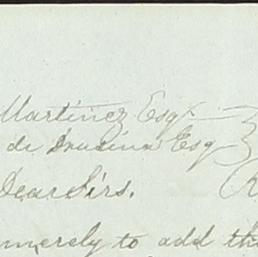 Martinez Esqr
de Drusina Esq
Dear Sirs.
merely to add th